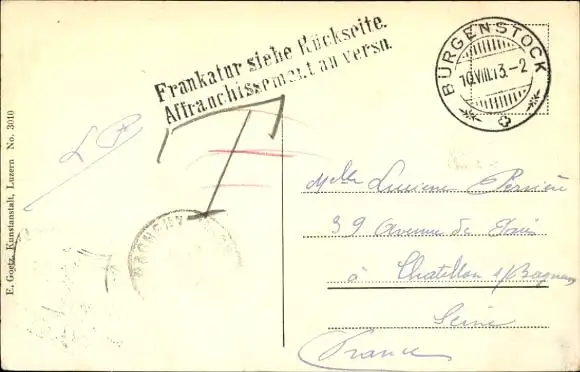 Frankatur siehe Rückseite.
Affranchissement au verso.
BÜRGENSTOCK
10.VIII.13.-2
T
LP
E. Goetz, Kunstanstalt, Luzern No. 3010
BAGNEUX
Melle Lucienne Perrière
39 Avenue de Paris
à Chatillon s/Bagneux
Seine
France